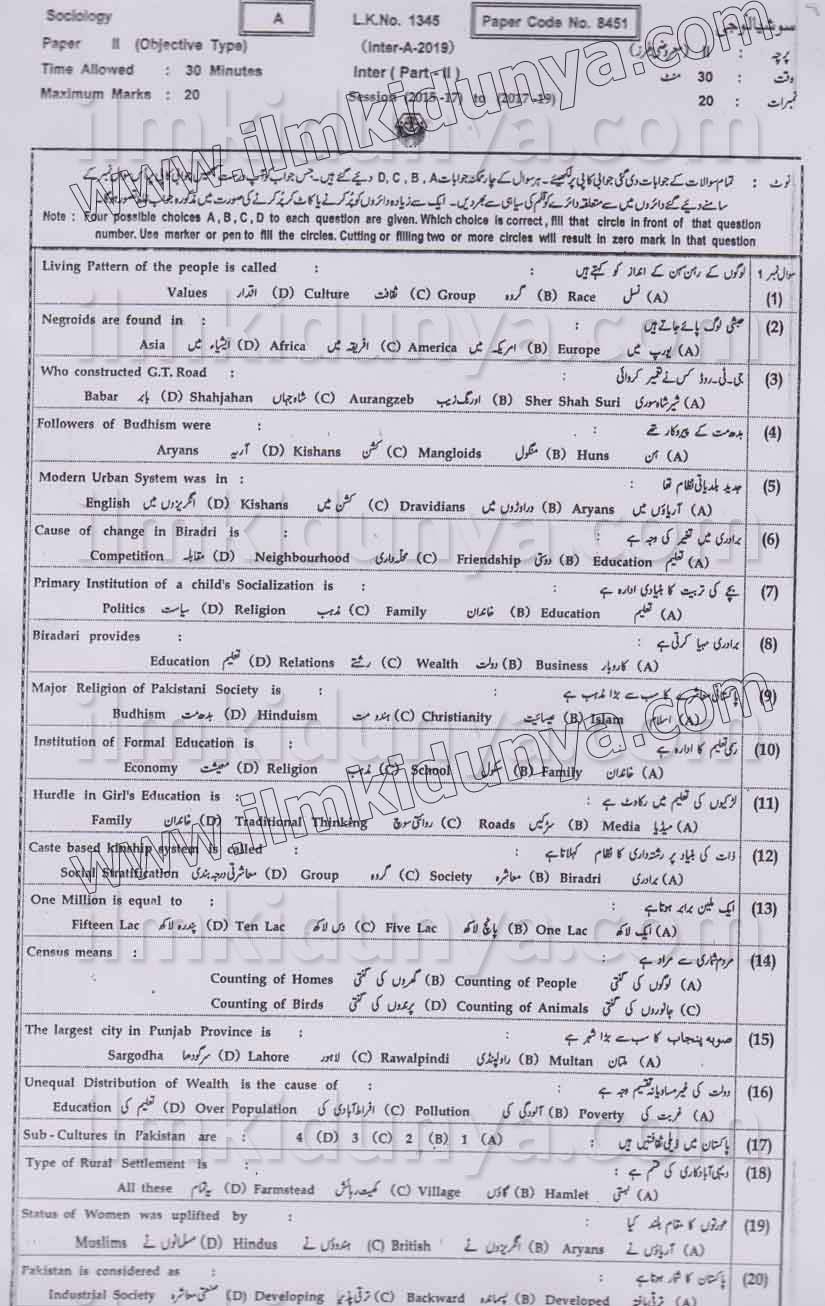 Sociology A L.K.No. 1345 Paper Code No. 8451 سوشیالوجی
Paper II (Objective Type) (Inter-A-2019) پرچہ : II (معروضی طرز)
Time Allowed : 30 Minutes Inter (Part-II) وقت : 30 منٹ
Maximum Marks : 20 Session (2015-17) to (2017-19) نمبرات : 20
نوٹ : تمام سوالات کے جوابات دی گئی جوابی کاپی پر لکھیئے۔ ہر سوال کے چار ممکنہ جوابات D, C, B, A دیئے گئے ہیں۔ جس جواب کو آپ درست سمجھیں جوابی کاپی پر اس سوال نمبر کے
سامنے دیئے گئے دائروں میں سے متعلقہ دائرے کو قلم کی سیاہی سے بھر دیں۔ ایک سے زیادہ دائروں کو پُر کرنے یا کاٹ کر پُر کرنے کی صورت میں مذکورہ جواب غلط تصور ہو گا۔
Note : Four possible choices A, B, C, D to each question are given. Which choice is correct, fill that circle in front of that question
number. Use marker or pen to fill the circles. Cutting or filling two or more circles will result in zero mark in that question
Living Pattern of the people is called : لوگوں کے رہن سہن کے انداز کو کہتے ہیں : سوال نمبر 1
Values اقدار (D) Culture ثقافت (C) Group گروہ (B) Race نسل (A) (1)
Negroids are found in : حبشی لوگ پائے جاتے ہیں : (2)
Asia ایشیاء میں (D) Africa افریقہ میں (C) America امریکہ میں (B) Europe یورپ میں (A)
Who constructed G.T. Road : جی۔ٹی۔روڈ کس نے تعمیر کروائی : (3)
Babar بابر (D) Shahjahan شاہ جہاں (C) Aurangzeb اورنگ زیب (B) Sher Shah Suri شیر شاہ سوری (A)
Followers of Budhism were : بدھ مت کے پیروکار تھے : (4)
Aryans آریہ (D) Kishans کشن (C) Mangloids منگول (B) Huns ہن (A)
Modern Urban System was in : جدید بلدیاتی نظام تھا : (5)
English انگریزوں میں (D) Kishans کشن میں (C) Dravidians دراوڑوں میں (B) Aryans آریاؤں میں (A)
Cause of change in Biradri is : برادری میں تغیر کی وجہ ہے : (6)
Competition مقابلہ (D) Neighbourhood محلہ داری (C) Friendship دوستی (B) Education تعلیم (A)
Primary Institution of a child's Socialization is : بچے کی تربیت کا بنیادی ادارہ ہے : (7)
Politics سیاست (D) Religion مذہب (C) Family خاندان (B) Education تعلیم (A)
Biradari provides : برادری مہیا کرتی ہے : (8)
Education تعلیم (D) Relations رشتے (C) Wealth دولت (B) Business کاروبار (A)
Major Religion of Pakistani Society is : پاکستانی معاشرے کا سب سے بڑا مذہب ہے : (9)
Budhism بدھ مت (D) Hinduism ہندو مت (C) Christianity عیسائیت (B) Islam اسلام (A)
Institution of Formal Education is : رسمی تعلیم کا ادارہ ہے : (10)
Economy معیشت (D) Religion مذہب (C) School سکول (B) Family خاندان (A)
Hurdle in Girl's Education is : لڑکیوں کی تعلیم میں رکاوٹ ہے : (11)
Family خاندان (D) Traditional Thinking روائتی سوچ (C) Roads سڑکیں (B) Media میڈیا (A)
Caste based kinship system is called : ذات کی بنیاد پر رشتہ داری کا نظام کہلاتا ہے : (12)
Social Stratification معاشرتی درجہ بندی (D) Group گروہ (C) Society معاشرہ (B) Biradri برادری (A)
One Million is equal to : ایک ملین برابر ہوتا ہے : (13)
Fifteen Lac پندرہ لاکھ (D) Ten Lac دس لاکھ (C) Five Lac پانچ لاکھ (B) One Lac ایک لاکھ (A)
Census means : مردم شماری سے مراد ہے : (14)
Counting of Homes گھروں کی گنتی (B) Counting of People لوگوں کی گنتی (A)
Counting of Birds پرندوں کی گنتی (D) Counting of Animals جانوروں کی گنتی (C)
The largest city in Punjab Province is : صوبہ پنجاب کا سب سے بڑا شہر ہے : (15)
Sargodha سرگودھا (D) Lahore لاہور (C) Rawalpindi راولپنڈی (B) Multan ملتان (A)
Unequal Distribution of Wealth is the cause of : دولت کی غیر مساویانہ تقسیم وجہ ہے : (16)
Education تعلیم کی (D) Over Population افراط آبادی کی (C) Pollution آلودگی کی (B) Poverty غربت کی (A)
Sub-Cultures in Pakistan are : 4 (D) 3 (C) 2 (B) 1 (A) پاکستان میں ذیلی ثقافتیں ہیں : (17)
Type of Rural Settlement is : دیہی آبادکاری کی قسم ہے : (18)
All these یہ تمام (D) Farmstead کھیت رہائش (C) Village گاؤں (B) Hamlet بستی (A)
Status of Women was uplifted by : عورتوں کا مقام بلند کیا : (19)
Muslims مسلمانوں نے (D) Hindus ہندوؤں نے (C) British انگریزوں نے (B) Aryans آریاؤں نے (A)
Pakistan is considered as : پاکستان کا شمار ہوتا ہے : (20)
Industrial Society صنعتی معاشرہ (D) Developing ترقی پذیر (C) Backward پسماندہ (B) Developed ترقی یافتہ (A)
www.ilmkidunya.com
www.ilmkidunya.com
ilmkidunya.com
ilmkidunya.com
ilmkidunya.com
ilmkidunya.com
ilmkidunya.com
ilmkidunya.com